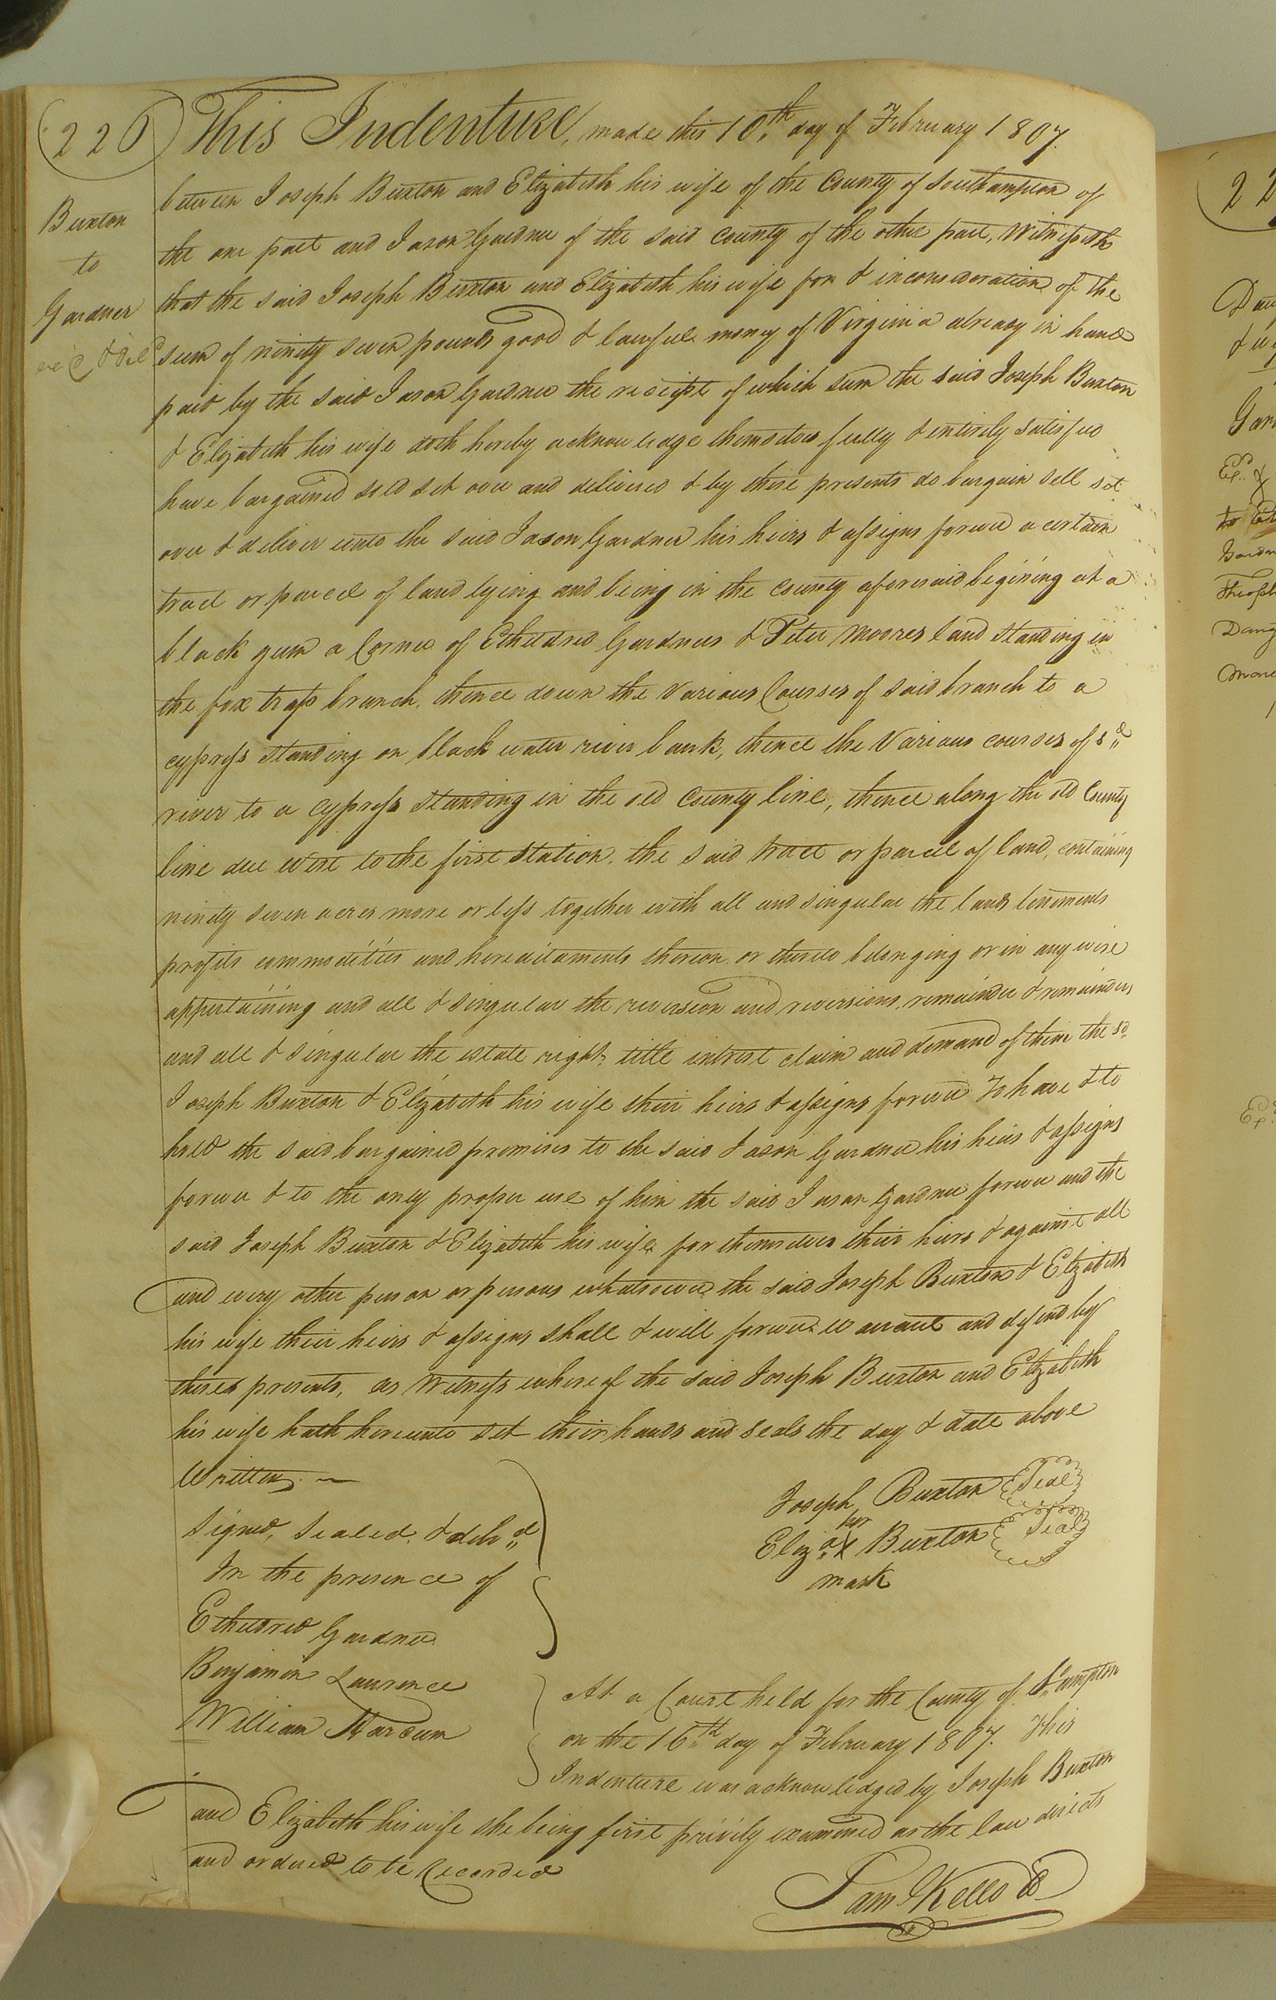 226
This Indenture, made this 10th day of February 1807.
between Joseph Buxton and Elizabeth his wife of the County of Southampton of
the one part and Jason Gardner of the said County of the other part, Witnesseth
that the said Joseph Buxton and Elizabeth his wife for & inconsideration of the
sum of ninety seven pounds good & lawfull money of Virginia already in hand
paid by the said Jason Gardner the receipt of which sum the said Joseph Buxton
& Elizabeth his wife doth hereby acknowledge themselves fully & entirely satisfied
have bargained sold set over and delivered & by these presents do bargain sell set
over & deliver unto the said Jason Gardner his heirs & assigns forever a certain
tract or parcel of land lying and being in the County aforesaid begining at a
black gum a Corner of Etheldred Gardners & Peter Moores land standing in
the fox trap branch, thence down the Various Courses of said branch to a
cypress standing on black water river bank, thence the Various courses of sd
river to a cypress standing in the old county line, thence along the old County
line due West to the first station. the said tract or parcel of land, containing
ninety seven acres more or less together with all and singular the lands tenements
profits commodities and hereditaments thereon or thereto belonging or in any wise
appertaining and all & singular the reversion and reversions, remainder & remainders
and all & singular the estate right, title intrest claim and demand of them the sd
Joseph Buxton & Elizabeth his wife their heirs & assigns forever To have & to
hold the said bargained premises to the said Jason Gardner his heirs & assigns
forever & to the only proper use of him the said Jason Gardner forever and the
said Joseph Buxton & Elizabeth his wife for themselves their heirs & against all
and every other person or persons whatsoever the said Joseph Buxton & Elizabeth
his wife their heirs & assigns shall & will forever warrant and defend by
these presents, as Witness whereof the said Joseph Buxton and Elizabeth
his wife hath hereunto set their hands and seals the day & date above
Written.
Buxton
to
Gardner
& deld
Joseph Buxton Seal
her
Eliza X Buxton Seal
mark
Signed, Sealed, & delivd
In the presence of
Etheldred Gardner
Benjamin Laurence
William Marcum
At a Court held for the County of S.ampton
on the 16th day of February 1807. This
Indenture was acknowledged by Joseph Buxton
and Elizabeth his wife she being first privily examined as the law directs
and ordered to be Recorded
Sam Kello
22